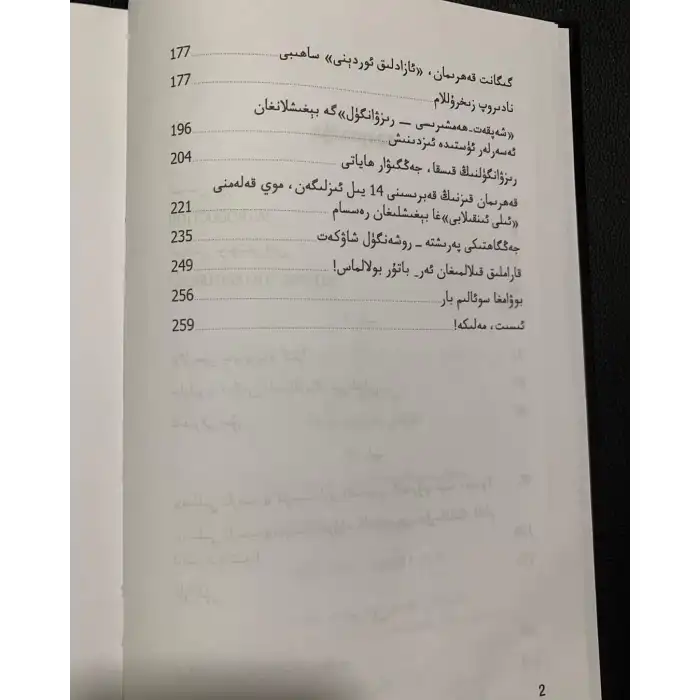 گىگانت قەھرىمان، «ئازادلىق ئوردېنى» ساھىبى 177
نادىروپ زىخرۇللام 177
«شەپقەت-ھەمشىرىسى — رىزۋانگۈل»گە بېغىشلانغان
ئەسەرلەر ئۈستىدە ئىزدىنىش 196
رىزۋانگۈلنىڭ قىسقا، جەڭگىۋار ھاياتى 204
قەھرىمان قىزنىڭ قەبرىسىنى 14 يىل ئىزلىگەن، موي قەلەمنى
«ئىلى ئىنقىلابى»غا بېغىشلىغان رەسسام 221
جەڭگاھتىكى پەرىشتە - روشەنگۈل شاۋكەت 235
قاراملىق قىلالمىغان ئەر- باتۇر بولالماس! 249
بوۋامغا سوئالىم بار 256
ئىسىت، مەلىكە! 259
2